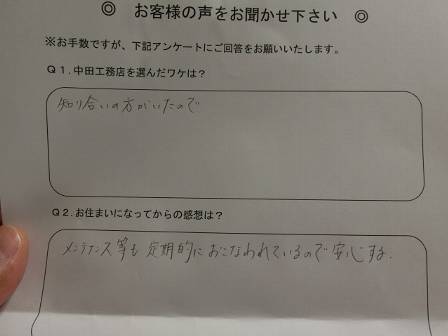 ◎ お客様の声をお聞かせ下さい ◎
※お手数ですが、下記アンケートにご回答をお願いいたします。
Q1.中田工務店を選んだワケは？
知り合いの方がいたので
Q2.お住まいになってからの感想は？
メンテナンス等も定期的におこなわれているので安心する.